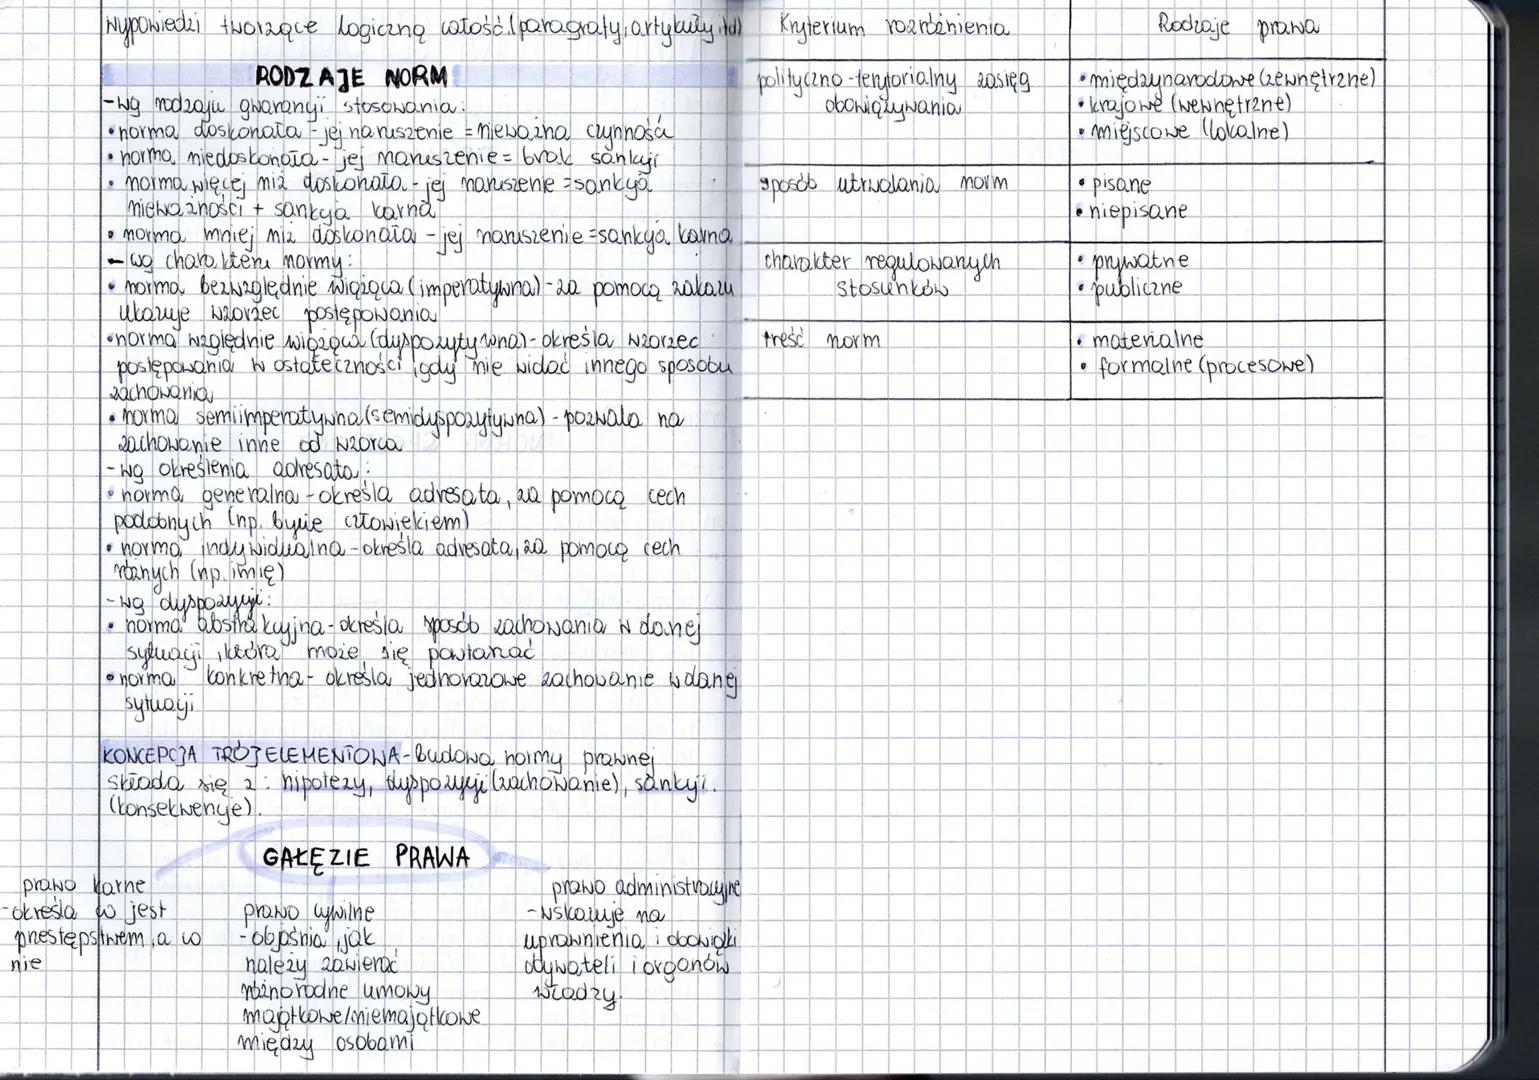 wypowiedzi tworzące logiczną całość (paragrafy, artykuły itd)
RODZAJE NORM
- wg rodzaju gwarancji stosowania:
• norma doskonała - jej naruszenie = nieważna czynność
• norma niedoskonała - jej naruszenie = brak sankcji
• norma więcej niż doskonała - jej naruszenie = sankcja
nieważności + sankcja karna
• norma mniej niż doskonała - jej naruszenie = sankcja karna
- wg charakteru normy:
• norma bezwzględnie wiążąca (imperatywna) - za pomocą zakazu
ukazuje wzorzec postępowania
• norma względnie wiążąca (dyspozytywna) - określa wzorzec
postępowania w ostateczności, gdy nie widać innego sposobu
zachowania
• norma semiimperatywna (semidyspozytywna) - pozwala na
zachowanie inne od wzorca
- wg określenia adresata:
• norma generalna - określa adresata, za pomocą cech
podobnych (np. bycie człowiekiem)
• norma indywidualna - określa adresata, za pomocą cech
różnych (np. imię)
- wg dyspozycji:
• norma abstrakcyjna - określa sposób zachowania w danej
sytuacji, która może się powtarzać
• norma konkretna - określa jednorazowe zachowanie w danej
sytuacji
KONCEPCJA TRÓJELEMENTOWA - Budowa normy prawnej
składa się z: hipotezy, dyspozycji (zachowanie), sankcji.
(konsekwencje).
GAŁĘZIE PRAWA
prawo karne
- określa co jest
przestępstwem, a co
nie
prawo cywilne
- objaśnia, jak
należy zawierać
różnorodne umowy
majątkowe/niemajątkowe
między osobami
prawo administracyjne
- wskazuje na
uprawnienia i obowiązki
obywateli i organów
władzy.
Kryterium rozróżnienia
Rodzaje prawa
polityczno-terytorialny zasięg
obowiązywania
• międzynarodowe (zewnętrzne)
• krajowe (wewnętrzne)
• miejscowe (lokalne)
sposób utrwalania norm
• pisane
• niepisane
charakter regulowanych
stosunków
• prywatne
• publiczne
treść norm
• materialne
• formalne (procesowe)